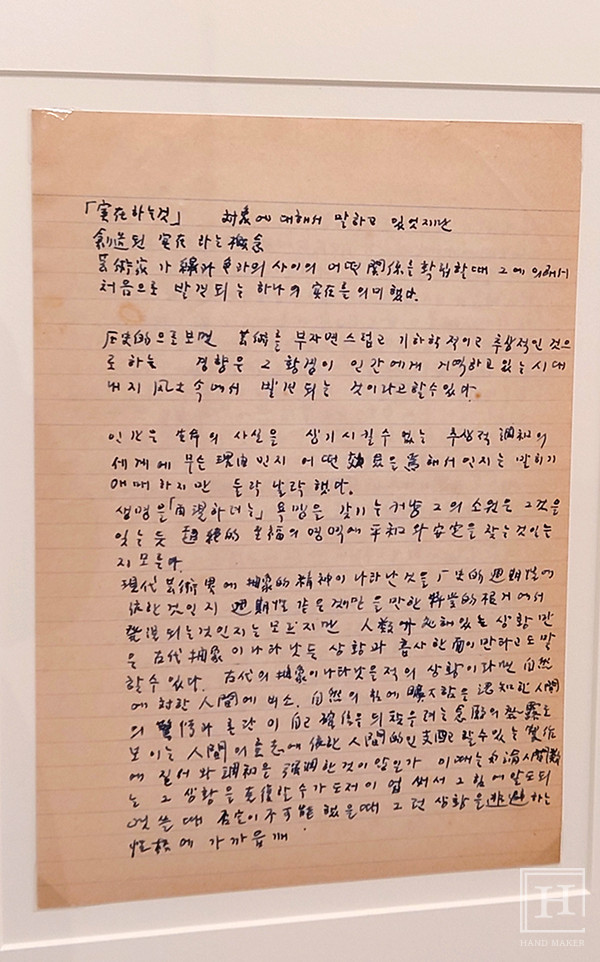 「実在하는것」 対象에 대해서 말하고 있엇지만
創造된 実在 하는 概念
芸術家가 線과 色과의 사이의 어떤 関係를 확립할때 그에 의해서
처음으로 발견 되는 하나의 実在를 의미했다.
历史的으로보면 芸術를 부자연스럽고 기하학적이고 추상적인 것으
로 하는 경향은 그 환경이 인간에게 거역하고 있는 시대
내지 风土 속에서 발견 되는 것이라고할수있다.
人間은 生命의 사실을 상기 시킬수 없는 추상적 調和의
세계에 무슨 理由인지 어떤 効果을 為해서 인지는 말하기
애매 하지만 들락 날락 했다.
생명을「再現하려는」욕망을 갖기는커녕 그의 소원은 그것을
잊는 듯 超絶的 至福의 영역에 平和와 安定을 찾는것있는
지 모른다
現代 芸術界에 抽象的 精神이 나타난 것을 历史的 週期性에
依한 것인지 週期性 같은 만한 根거에서
発現 되는것인지는 모르지만 人数 있는 상황 만
은 古代 抽象 이 나타낫든 상황과 흡사한 面이 만타고도 말
할수 있다. 古代의 抽象이나타낫을적의 상황이다면 自然
에 対한 人間에 비소, 自然의 힘에 広大함을 認知한 人間
의 혼란 이 自己 確信을 되찾으려는 念願의 発露로
보이는 人間의 依한 人間的인 支로 할수있는 製作
에 질서와 調和을 強調한것이 않인가 이때는
는 그 상황을 克復할수가 도저이 업써서 그 힘에 압도되
엿 쓸 때 否定이 不可能 했을때 그런 상황을 逃避하는
性格에 가까웁게
HAND MAKER